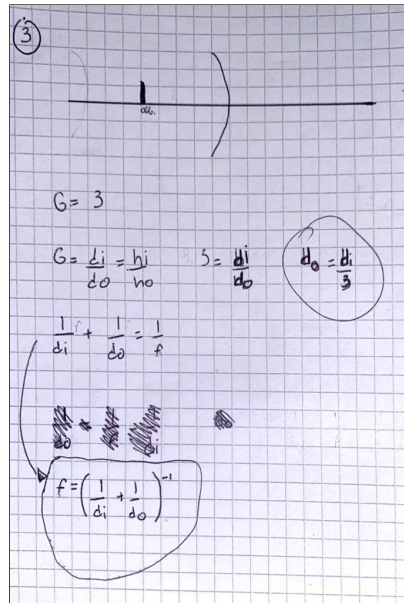 3
ogg.
G = 3
G = di/do = hi/ho 3 = di/do do = di/3
1/di + 1/do = 1/f
f = (1/di + 1/do)^-1